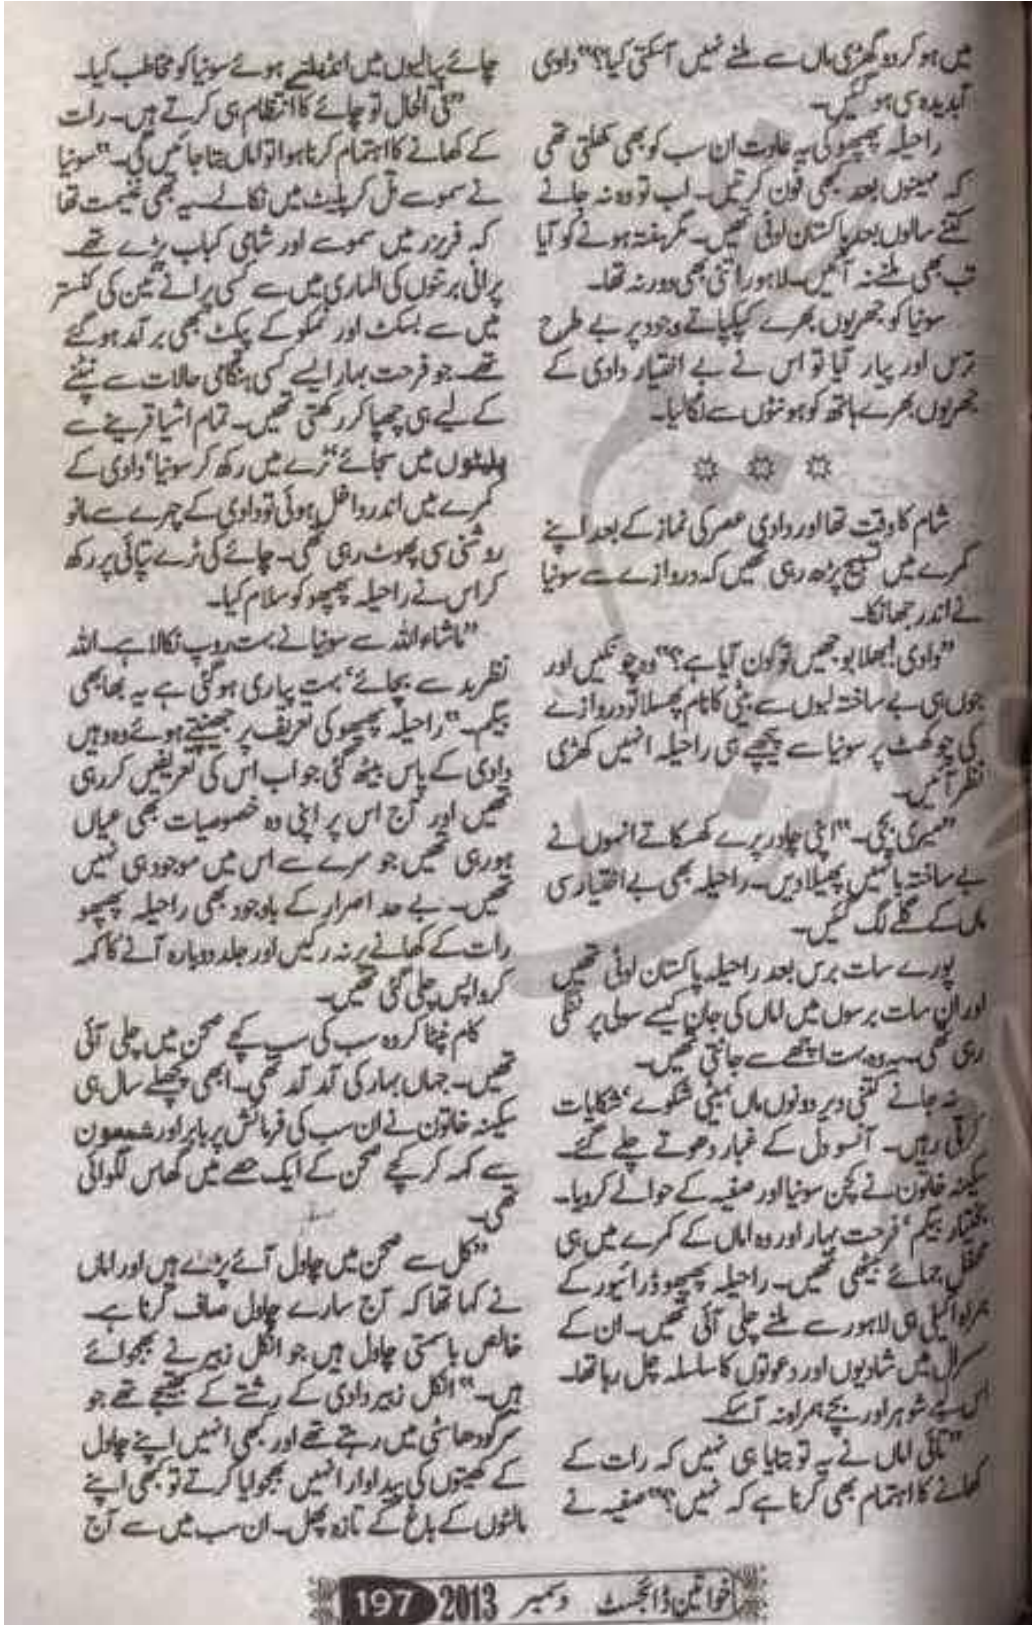 میں ہو کر دو گھڑی ماں سے ملنے نہیں آسکتی کیا؟" دادی
آبدیدہ سی ہو گئیں۔
راحیلہ پھپھو کی یہ عادت ان سب کو بھی کھلتی تھی
کہ مہینوں بعد کبھی فون کرتیں۔ اب تو وہ نہ جانے
کتنے سالوں بعد پاکستان لوٹی تھیں۔ مگر ہفتہ ہونے کو آیا
تب بھی ملنے نہ آئیں۔ لاہور اتنی بھی دور نہ تھا۔
سونیا کو جھریوں بھرے کپکپاتے وجود پر بے طرح
ترس اور پیار آیا تو اس نے بے اختیار دادی کے
جھریوں بھرے ہاتھ کو ہونٹوں سے لگالیا۔
شام کا وقت تھا اور دادی عصر کی نماز کے بعد اپنے
کمرے میں تسبیح پڑھ رہی تھیں کہ دروازے سے سونیا
نے اندر جھانکا۔
"دادی! بھلا بوجھیں تو کون آیا ہے؟" وہ چونکیں اور
جوں ہی بے ساختہ لبوں سے بیٹی کا نام پھسلا تو دروازے
کی چوکھٹ پر سونیا سے پیچھے ہی راحیلہ انہیں کھڑی
نظر آئیں۔
"میری بچی۔" اپنی چادر پرے کھسکاتے انہوں نے
بے ساختہ بانہیں پھیلا دیں۔ راحیلہ بھی بے اختیار سی
ماں کے گلے لگ گئیں۔
پورے سات برس بعد راحیلہ پاکستان لوٹی تھیں
اور ان سات برسوں میں اماں کی جان کیسے سولی پر لٹکی
رہی تھی۔ یہ وہ بہت اچھے سے جانتی تھیں۔
نہ جانے کتنی دیر دونوں ماں بیٹی شکوے، شکایات
کرتی رہیں۔ آنسو دل کے غبار دھوتے چلے گئے۔
سکینہ خاتون نے کچن سونیا اور صفیہ کے حوالے کر دیا۔
بختیار بیگم، فرحت بہار اور وہ اماں کے کمرے میں ہی
محفل جمائے بیٹھی تھیں۔ راحیلہ پھپھو ڈرائیور کے
ہمراہ اکیلی ہی لاہور سے ملنے چلی آئی تھیں۔ ان کے
سسرال میں شادیوں اور دعوتوں کا سلسلہ چل رہا تھا۔
اس لیے شوہر اور بچے ہمراہ نہ آسکے۔
"تائی اماں نے یہ تو بتایا ہی نہیں کہ رات کے
کھانے کا اہتمام بھی کرنا ہے کہ نہیں؟" صفیہ نے
چائے پیالیوں میں انڈھیلتے ہوئے سونیا کو مخاطب کیا۔
"فی الحال تو چائے کا انتظام ہی کرتے ہیں۔ رات
کے کھانے کا اہتمام کرنا ہوا تو اماں بتا جائیں گی۔" سونیا
نے سموسے تل کر پلیٹ میں نکالے۔ یہ بھی غنیمت تھا
کہ فریزر میں سموسے اور شامی کباب پڑے تھے۔
پرانی برتنوں کی الماری میں سے کسی پرانے ٹین کی کنستر
میں سے بسکٹ اور نمکو کے پکٹ بھی برآمد ہو گئے
تھے۔ جو فرحت بہار ایسے کسی ہنگامی حالات سے نپٹنے
کے لیے ہی چھپا کر رکھتی تھیں۔ تمام اشیا قرینے سے
پلیٹوں میں سجائے، ٹرے میں رکھ کر سونیا، دادی کے
کمرے میں اندر داخل ہوئی تو دادی کے چہرے سے مانو
روشنی سی پھوٹ رہی تھی۔ چائے کی ٹرے تپائی پر رکھ
کر اس نے راحیلہ پھپھو کو سلام کیا۔
"ماشاء اللہ سے سونیا نے بہت روپ نکالا ہے۔ اللہ
نظر بد سے بچائے، بہت پیاری ہو گئی ہے یہ بھابھی
بیگم۔" راحیلہ پھپھو کی تعریف پر جھینپتے ہوئے وہ وہیں
دادی کے پاس بیٹھ گئی جو اب اس کی تعریفیں کر رہی
تھیں اور آج اس پر اپنی وہ خصوصیات بھی عیاں
ہو رہی تھیں جو سرے سے اس میں موجود ہی نہیں
تھیں۔ بے حد اصرار کے باوجود بھی راحیلہ پھپھو
رات کے کھانے پر نہ رکیں اور جلد دوبارہ آنے کا کہہ
کر واپس چلی گئی تھیں۔
کام نپٹا کر وہ سب کی سب کچے صحن میں چلی آئی
تھیں۔ جہاں بہار کی آمد آمد تھی۔ ابھی پچھلے سال ہی
سکینہ خاتون نے ان سب کی فرمائش پر بابر اور شمعون
سے کہہ کر کچے صحن کے ایک حصے میں گھاس لگوائی
تھی۔
"کل سے صحن میں چاول آئے پڑے ہیں اور اماں
نے کہا تھا کہ آج سارے چاول صاف کرنا ہے۔
خالص باسمتی چاول ہیں جو انکل زبیر نے بھجوائے
ہیں۔" انکل زبیر دادی کے رشتے کے بھتیجے تھے جو
سرگودھا ہی میں رہتے تھے اور کبھی انہیں اپنے چاول
کے کھیتوں کی پیداوار انہیں بھجوایا کرتے تو کبھی اپنے
مالٹوں کے باغ کے تازہ پھل۔ ان سب میں سے آج
خواتین ڈائجسٹ دسمبر 2013 197